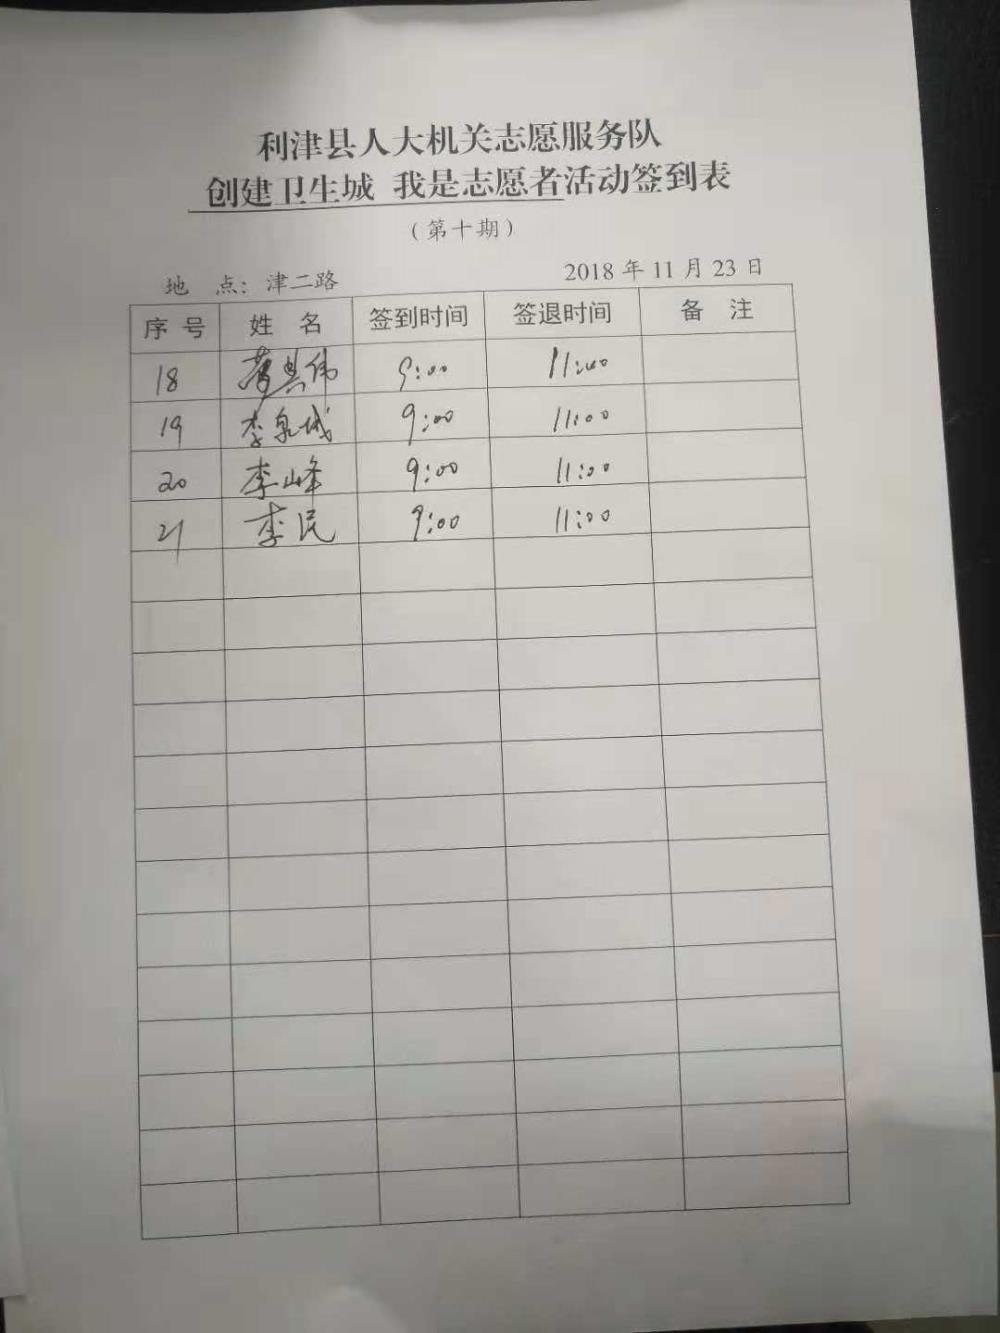 利津县人大机关志愿服务队
创建卫生城 我是志愿者活动签到表
（第十期）
地 点：津二路 2018 年 11 月 23 日
序 号 姓 名 签到时间 签退时间 备 注
18 9:00 11:00
19 李泉城 9:00 11:00
20 李山峰 9:00 11:00
21 李民 9:00 11:00